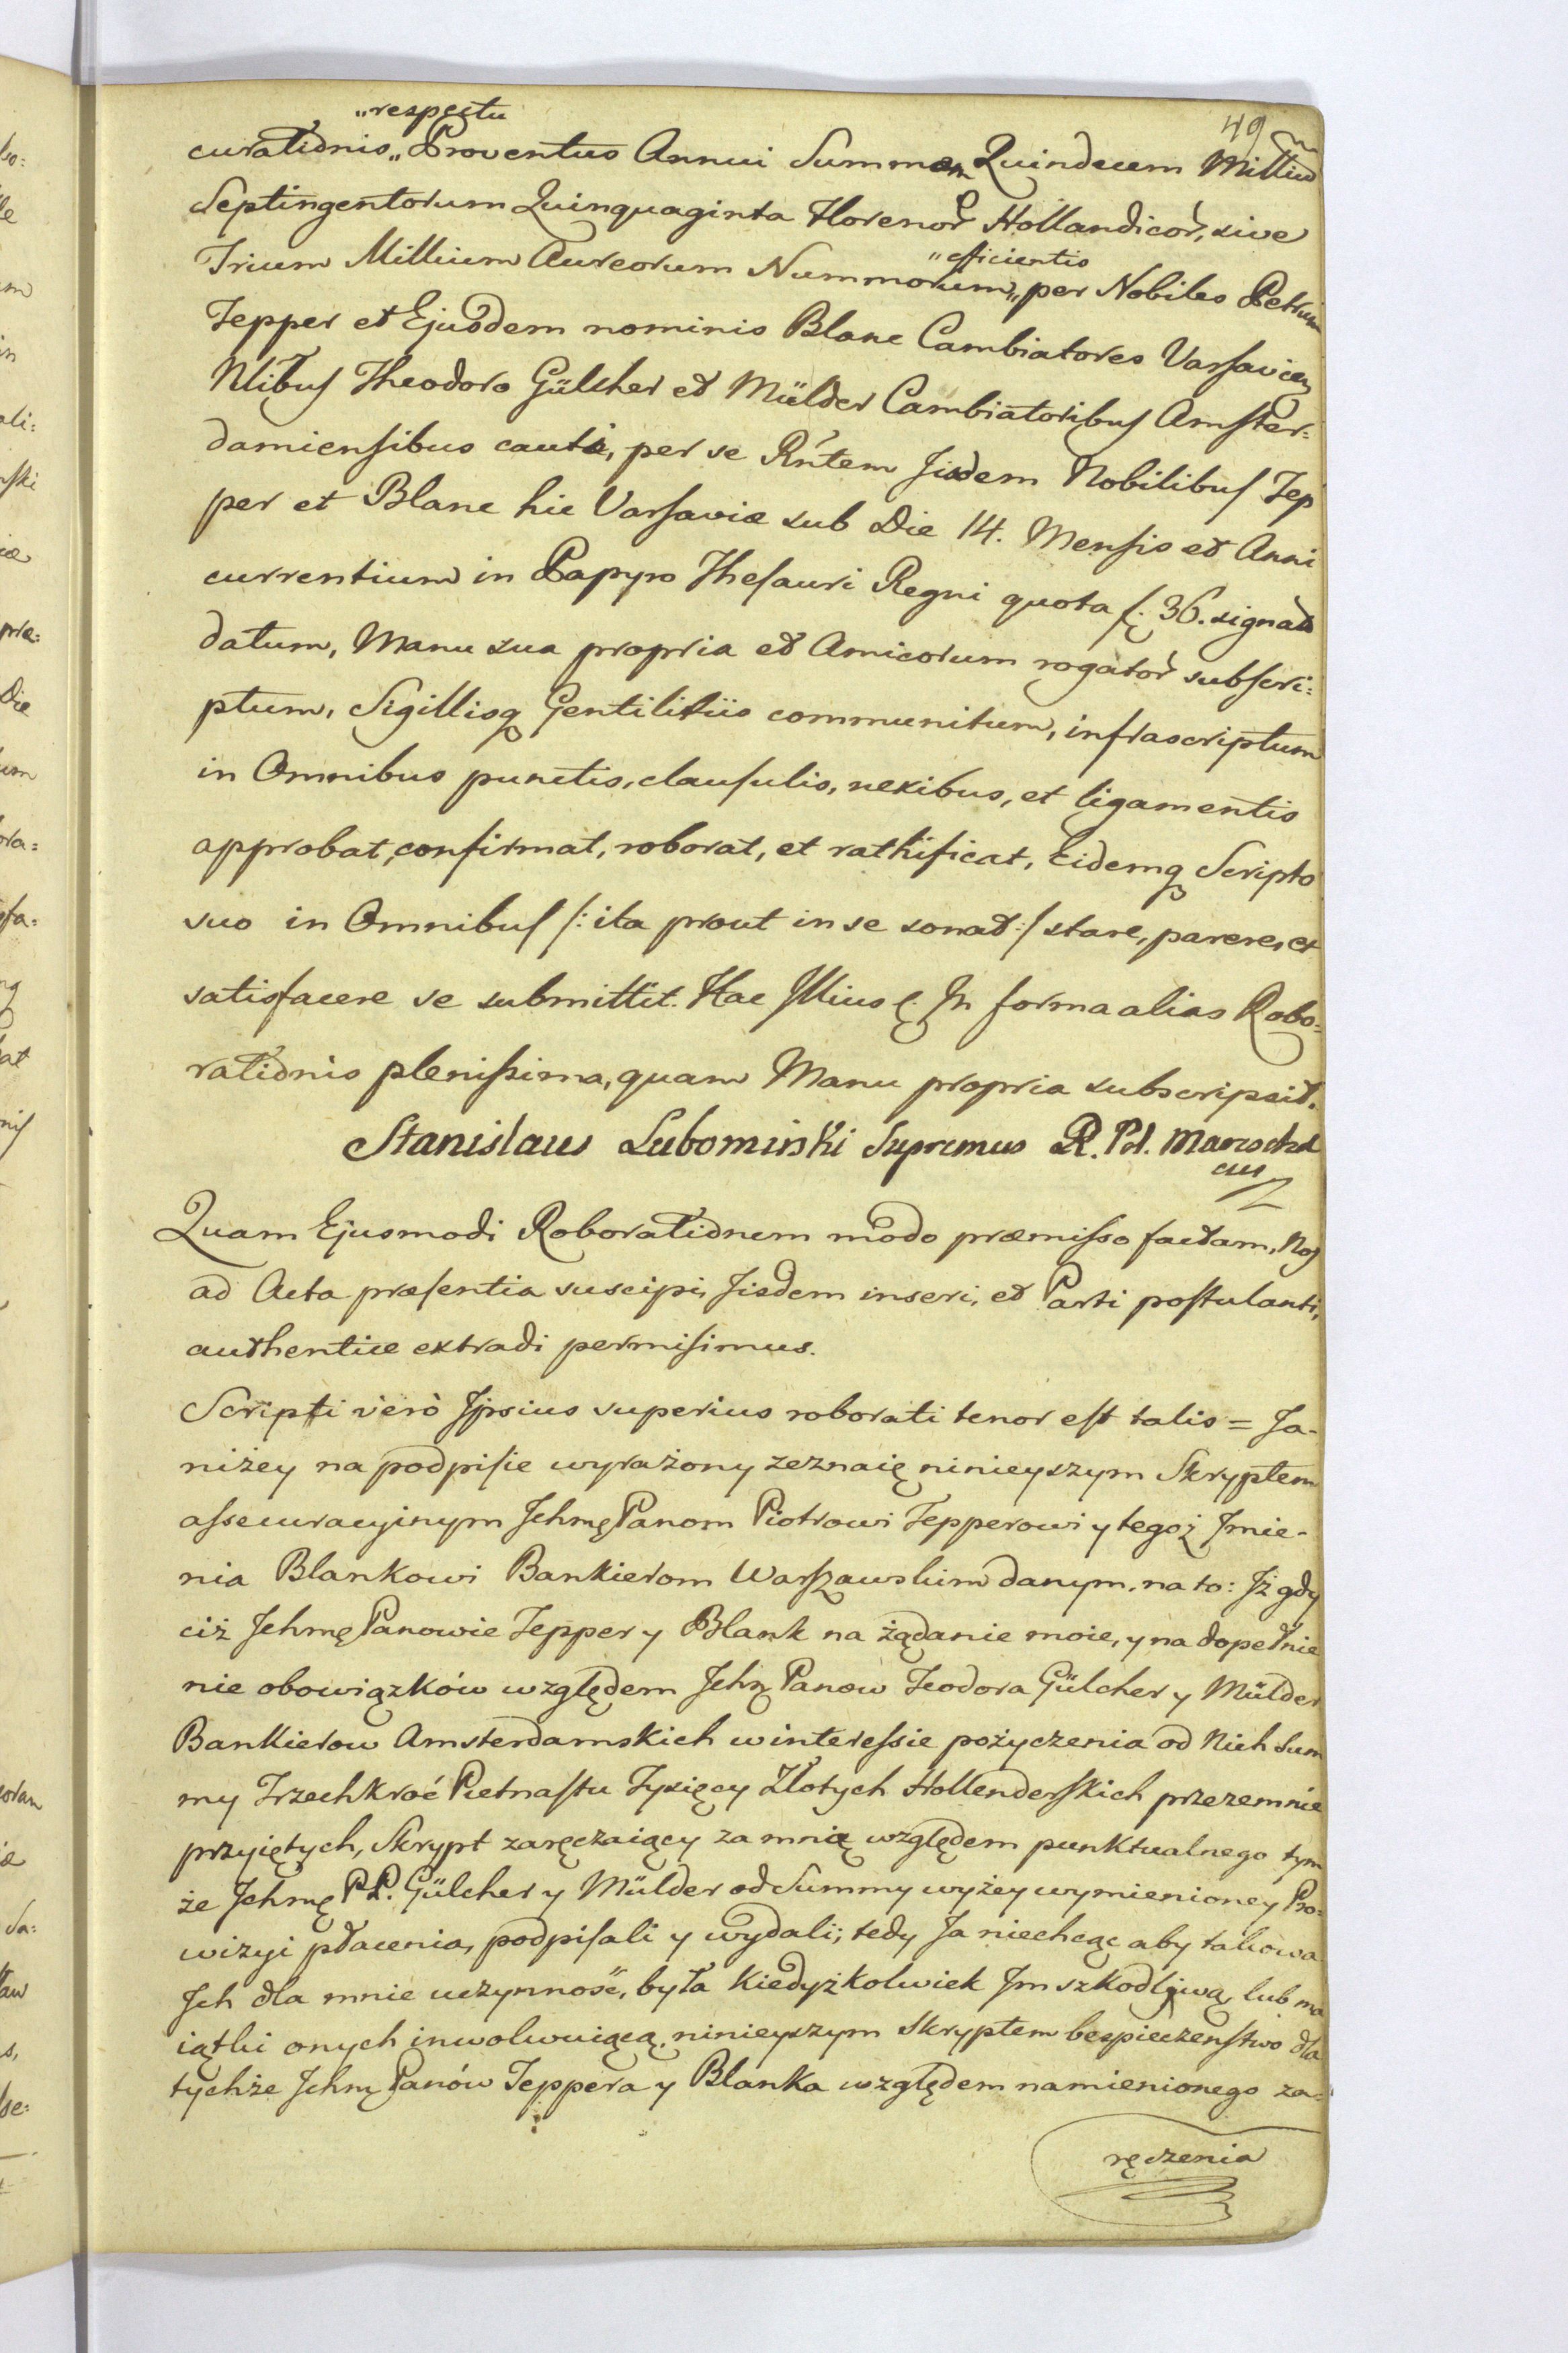 49
„respectu
curationis„ Proventus Annui Summam Quindecem Millium
Septingentorum Quinquaginta Florenor Hollandicor, sive
„efficientis
Trium Millium Aureorum Nummorum„ per Nobiles Petrum
Tepper et Ejusdem nominis Blanc Cambiatores Varsavien
Nlibus Theodoro Gülcher et Mülder Cambiatoribus Amster:
damiensibus cauti, per se Rntem Iisdem Nobilibus Tep
per et Blanc hic Varsaviæ sub Die 14. Mensis et Anni
currentium in Papyro Thesauri Regni quota f: 36. signato
datum, Manu sua propria et Amicorum rogator subscri:
ptum, Sigillisq Gentilitiis communitum, infrascriptum
in Omnibus punctis, clausulis, nexibus, et ligamentis
approbat, confirmat, roborat, et rathificat, Eidemq Scripto
suo in Omnibus /: ita prout in se sonat :/ stare, parere, et
satisfacere se submittit. Hac Illius q. In forma alias Robo:
rationis plenissima, quam Manu propria subscripsit.
Stanislaus Lubomirski Supremus R. Pol. Marschal
cus
Quam Ejusmodi Roborationem modo præmisso factam, Nos
ad Acta præsentia suscipi, Iisdem inseri, et Parti postulanti,
authentice extradi permisimus.
Scripti verò Ipsius superius roborati tenor est talis = Ja
niżey na podpisie wyrażony zeznaię ninieyszym Skryptem
assecuracyinym Ichmę Panom Piotrowi Tepperowi y tegoż Imie-
nia Blankowi Bankierom Warszawskim danym, na to: Iż gdy
ciż Ichmę Panowie Tepper y Blank na żądanie moie, y na dopełnie
nie obowiązków względem Ichę Panow Teodora Gülcher y Mülder
Bankierow Amsterdamskich w interessie pożyczenia od Nich Sum
my Trzechkroć Pietnastu Tysięcy Złotych Hollenderskich przezemnie
przyiętych, Skrypt zaręczaiący za mnią względem punktualnego tym
że Ichmę PP. Gülcher y Mülder od Summy wyżey wymienioney Pro:
wizyi płacenia, podpisali y wydali; tedy Ja niechcąc aby takowa
Ich dla mnie uczynność, była kiedyżkolwiek Im szkodliwą, lub ma
iątki onych inwolwuiącą, ninieyszym Skryptem bespieczenstwo dla
tychże Ichmę Panów Teppera y Blanka względem namienionego za-
ręczenia